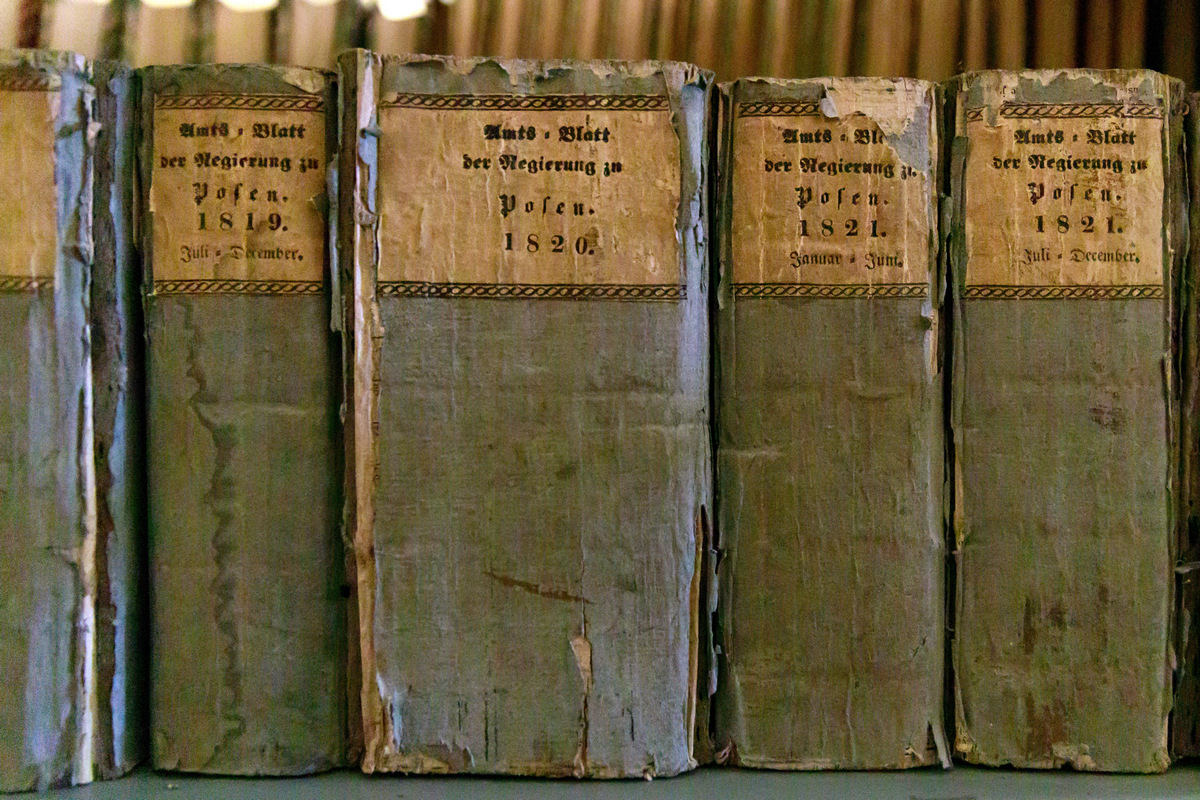 Amts - Blatt
der Regierung zu
Posen.
1819.
Juli - December.
Amts - Blatt
der Regierung zu
Posen.
1820.
Amts - Bl
der Regierung zu
Posen.
1821.
Januar - Juni.
Amts - Blatt
der Regierung zu
Posen.
1821.
Juli - December.